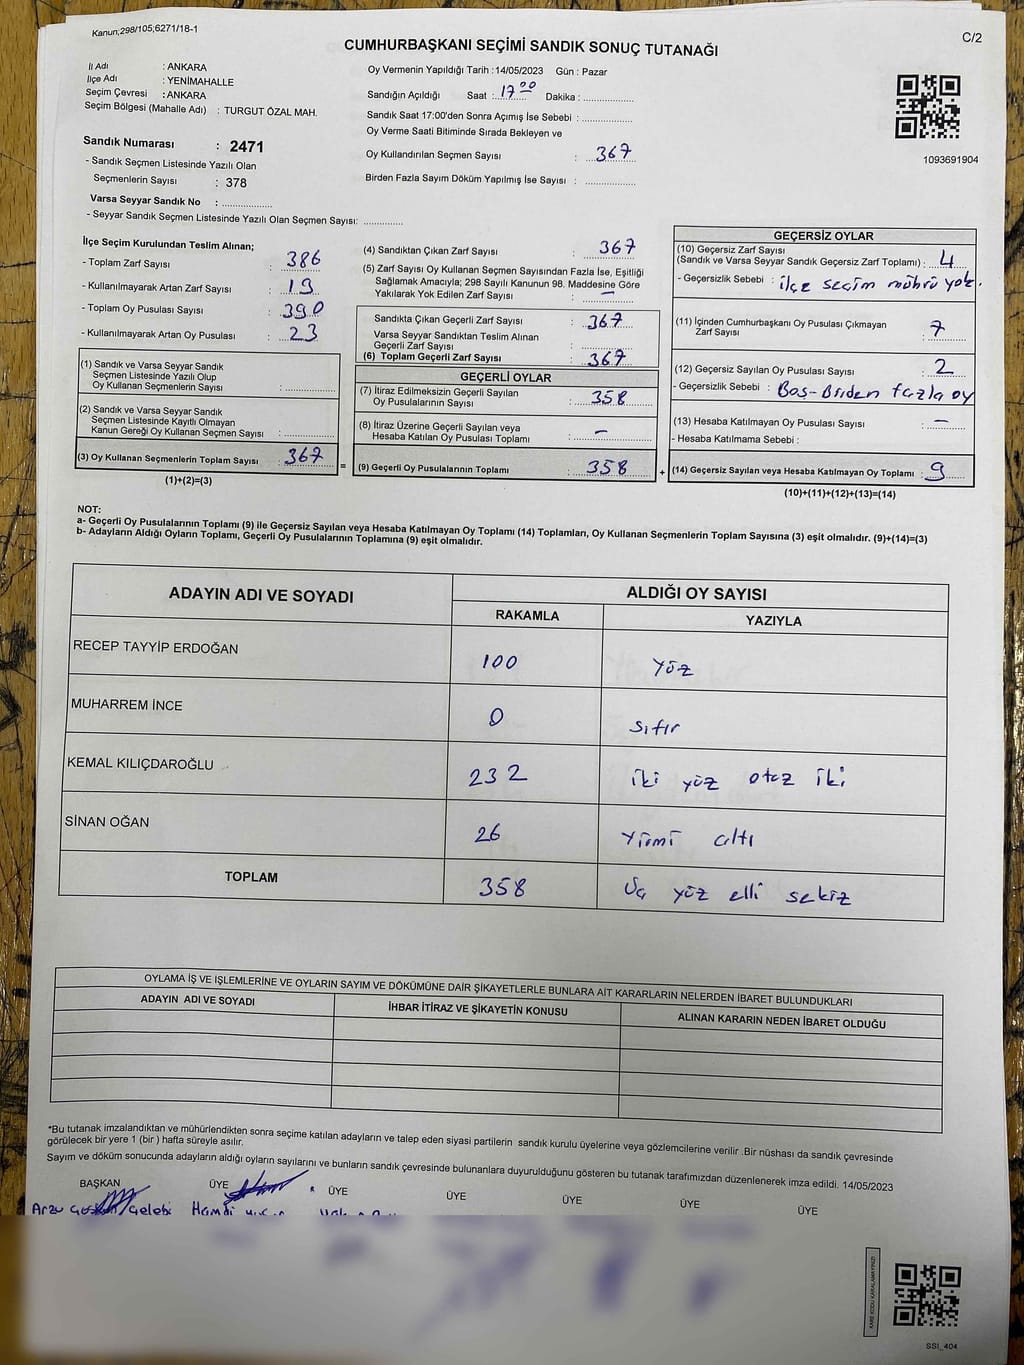 Kanun;298/105;6271/18-1
C/2
CUMHURBAŞKANI SEÇİMİ SANDIK SONUÇ TUTANAĞI
İl Adı : ANKARA
İlçe Adı : YENİMAHALLE
Seçim Çevresi : ANKARA
Seçim Bölgesi (Mahalle Adı) : TURGUT ÖZAL MAH.
Oy Vermenin Yapıldığı Tarih :14/05/2023 Gün : Pazar
Sandığın Açıldığı Saat : 17 00 Dakika :
Sandık Saat 17:00'den Sonra Açımış İse Sebebi :
Oy Verme Saati Bitiminde Sırada Bekleyen ve
Oy Kullandırılan Seçmen Sayısı : 367
Birden Fazla Sayım Döküm Yapılmış İse Sayısı :
1093691904
Sandık Numarası : 2471
- Sandık Seçmen Listesinde Yazılı Olan
Seçmenlerin Sayısı : 378
Varsa Seyyar Sandık No :
- Seyyar Sandık Seçmen Listesinde Yazılı Olan Seçmen Sayısı:
İlçe Seçim Kurulundan Teslim Alınan;
- Toplam Zarf Sayısı : 386
- Kullanılmayarak Artan Zarf Sayısı : 19
- Toplam Oy Pusulası Sayısı : 390
- Kullanılmayarak Artan Oy Pusulası : 23
(1) Sandık ve Varsa Seyyar Sandık
Seçmen Listesinde Yazılı Olup
Oy Kullanan Seçmenlerin Sayısı :
(2) Sandık ve Varsa Seyyar Sandık
Seçmen Listesinde Kayıtlı Olmayan
Kanun Gereği Oy Kullanan Seçmen Sayısı :
(3) Oy Kullanan Seçmenlerin Toplam Sayısı : 367
(1)+(2)=(3)
=
(4) Sandıktan Çıkan Zarf Sayısı : 367
(5) Zarf Sayısı Oy Kullanan Seçmen Sayısından Fazla İse, Eşitliği
Sağlamak Amacıyla; 298 Sayılı Kanunun 98. Maddesine Göre
Yakılarak Yok Edilen Zarf Sayısı : –
Sandıkta Çıkan Geçerli Zarf Sayısı : 367
Varsa Seyyar Sandıktan Teslim Alınan
Geçerli Zarf Sayısı :
(6) Toplam Geçerli Zarf Sayısı : 367
GEÇERLİ OYLAR
(7) İtiraz Edilmeksizin Geçerli Sayılan
Oy Pusulalarının Sayısı : 358
(8) İtiraz Üzerine Geçerli Sayılan veya
Hesaba Katılan Oy Pusulası Toplamı : –
(9) Geçerli Oy Pusulalarının Toplamı : 358
+
GEÇERSİZ OYLAR
(10) Geçersiz Zarf Sayısı
(Sandık ve Varsa Seyyar Sandık Geçersiz Zarf Toplamı) : 4
- Geçersizlik Sebebi : ilçe seçim mührü yok.
(11) İçinden Cumhurbaşkanı Oy Pusulası Çıkmayan
Zarf Sayısı : 7
(12) Geçersiz Sayılan Oy Pusulası Sayısı : 2
- Geçersizlik Sebebi : Boş-Briden fazla oy
(13) Hesaba Katılmayan Oy Pusulası Sayısı : –
- Hesaba Katılmama Sebebi :
(14) Geçersiz Sayılan veya Hesaba Katılmayan Oy Toplamı : 9
(10)+(11)+(12)+(13)=(14)
NOT:
a- Geçerli Oy Pusulalarının Toplamı (9) ile Geçersiz Sayılan veya Hesaba Katılmayan Oy Toplamı (14) Toplamları, Oy Kullanan Seçmenlerin Toplam Sayısına (3) eşit olmalıdır. (9)+(14)=(3)
b- Adayların Aldığı Oyların Toplamı, Geçerli Oy Pusulalarının Toplamına (9) eşit olmalıdır.
ADAYIN ADI VE SOYADI ALDIĞI OY SAYISI
RAKAMLA YAZIYLA
RECEP TAYYİP ERDOĞAN 100 yüz
MUHARREM İNCE 0 sıfır
KEMAL KILIÇDAROĞLU 232 iki yüz otuz iki
SİNAN OĞAN 26 yirmi altı
TOPLAM 358 Üç yüz elli sekiz
OYLAMA İŞ VE İŞLEMLERİNE VE OYLARIN SAYIM VE DÖKÜMÜNE DAİR ŞİKAYETLERLE BUNLARA AİT KARARLARIN NELERDEN İBARET BULUNDUKLARI
ADAYIN ADI VE SOYADI İHBAR İTİRAZ VE ŞİKAYETİN KONUSU ALINAN KARARIN NEDEN İBARET OLDUĞU
*Bu tutanak imzalandıktan ve mühürlendikten sonra seçime katılan adayların ve talep eden siyasi partilerin sandık kurulu üyelerine veya gözlemcilerine verilir .Bir nüshası da sandık çevresinde
görülecek bir yere 1 (bir ) hafta süreyle asılır.
Sayım ve döküm sonucunda adayların aldığı oyların sayılarını ve bunların sandık çevresinde bulunanlara duyurulduğunu gösteren bu tutanak tarafımızdan düzenlenerek imza edildi. 14/05/2023
BAŞKAN ÜYE ÜYE ÜYE ÜYE ÜYE ÜYE
Arzu Çelebi Hamdi
KARE KODU KARALAMAYINIZ!
SSI_404